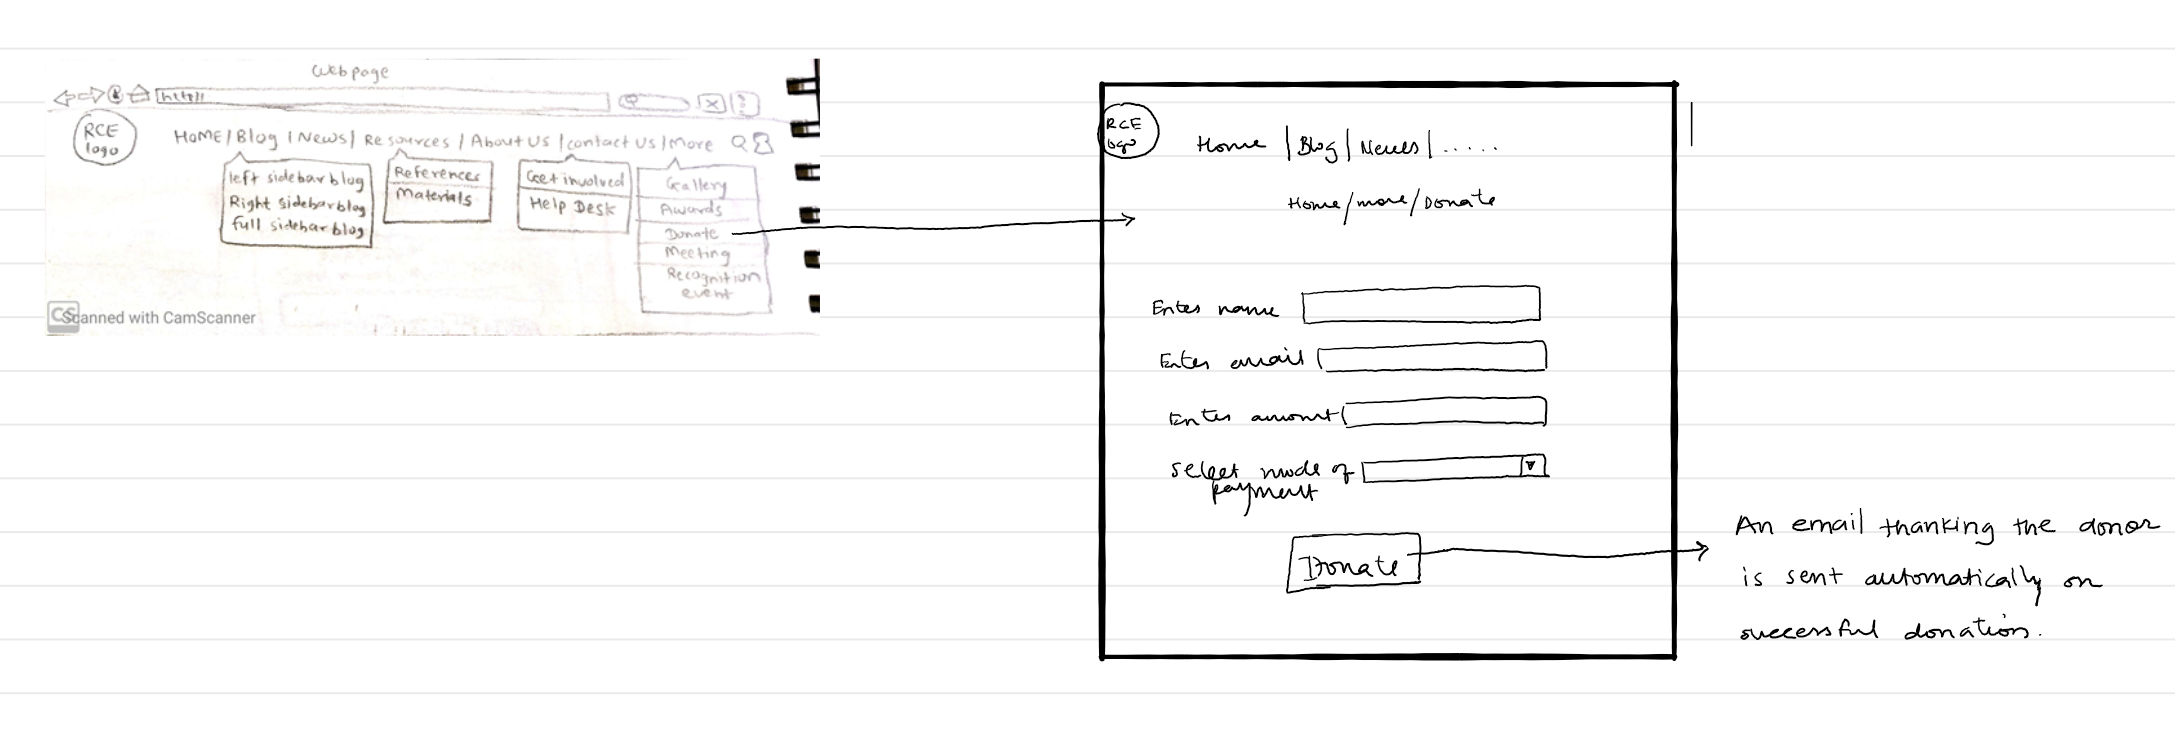 Webpage
http//
RCE
logo
HOME/Blog | News/ Resources / About Us /contact Us /More
left sidebar blog
Right sidebar blog
full sidebar blog
References
Materials
Get involved
Help Desk
Gallery
Awards
Donate
Meeting
Recognition
event
CS Scanned with CamScanner
RCE
logo
Home | Blog | News | .....
Home/more/Donate
Enter name
Enter email
Enter amount
Select mode of
payment
Donate
An email thanking the donor
is sent automatically on
successful donation.